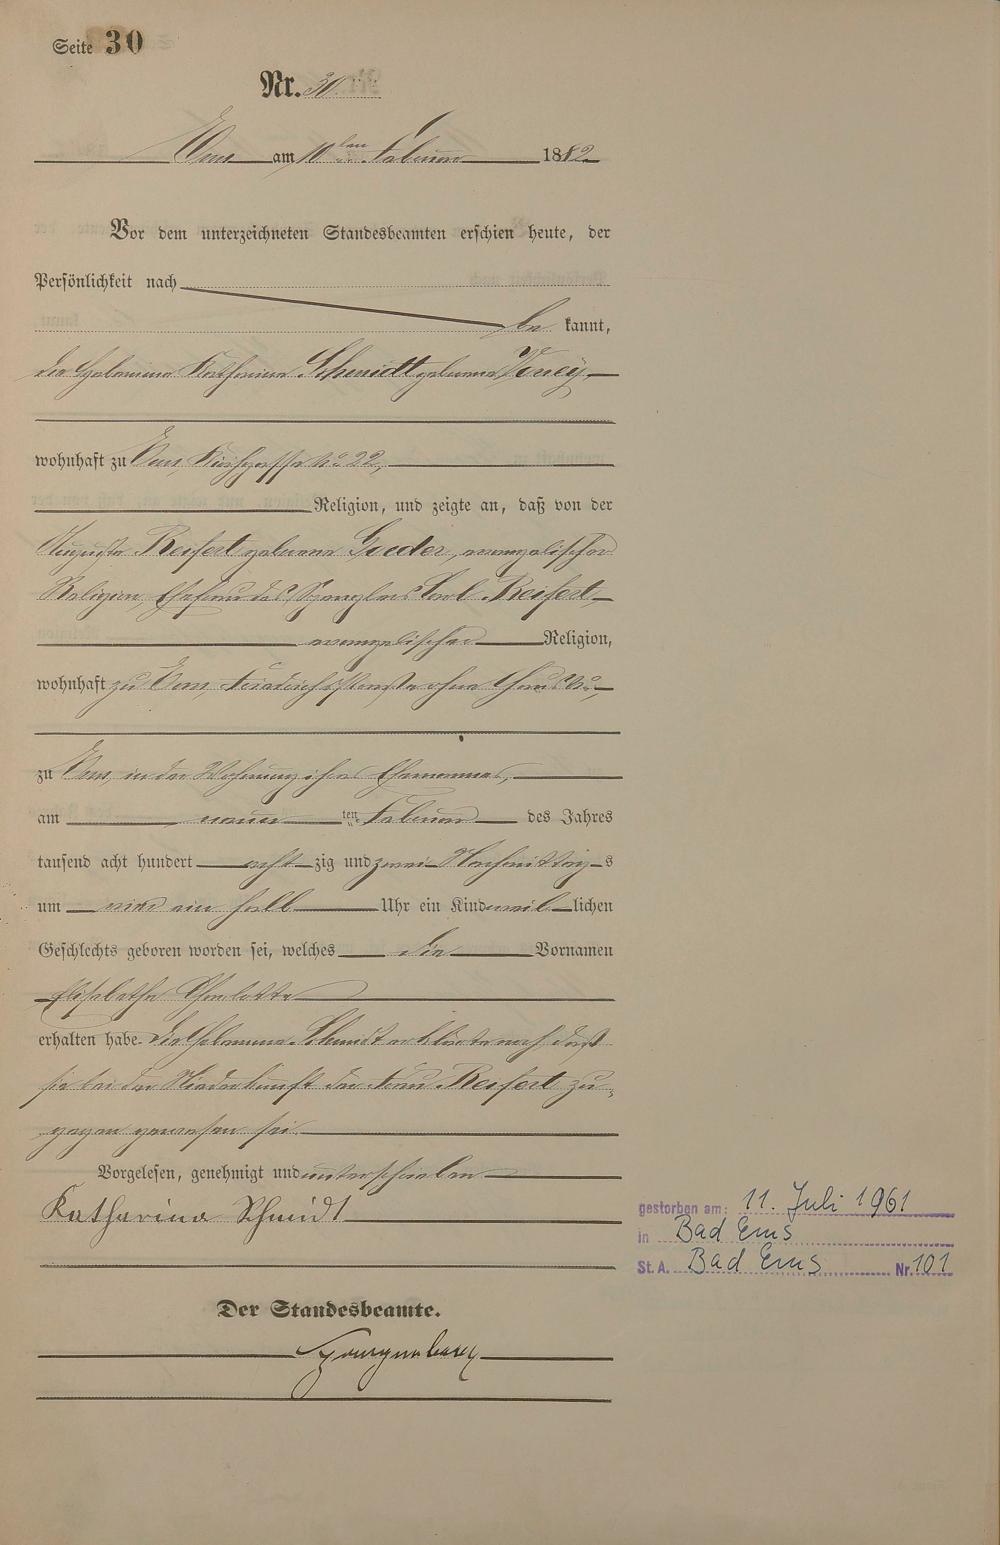 Seite 30
Nr. 30
Ems am 10ten Februar 1882
Vor dem unterzeichneten Standesbeamten erschien heute, der
Persönlichkeit nach
be kannt,
die Hebamme Katharina Schmidt geborene
wohnhaft zu Ems, Kirchgasse No 22,
Religion, und zeigte an, daß von der
Auguste Reifert geborene evangelischer
Religion, Ehefrau des Spenglers Carl Reifert
evangelischer Religion,
wohnhaft zu Ems, Friedrichstraße ohne Haus No,
zu Ems, in der Wohnung ihres Ehemannes,
am neun ten Februar des Jahres
tausend acht hundert acht zig und zwei Nachmittag s
um vier ein halb Uhr ein Kind weib lichen
Geschlechts geboren worden sei, welches die Vornamen
Elisabetha Charlotte
erhalten habe. Die Hebamme Schmidt erklärte noch daß
sie bei der Niederkunft der Frau Reifert zu-
gegen gewesen sei.
Vorgelesen, genehmigt und unterschrieben
Katharina Schmidt
gestorben am: 11. Juli 1961
in Bad Ems
St. A. Bad Ems Nr. 101
Der Standesbeamte.